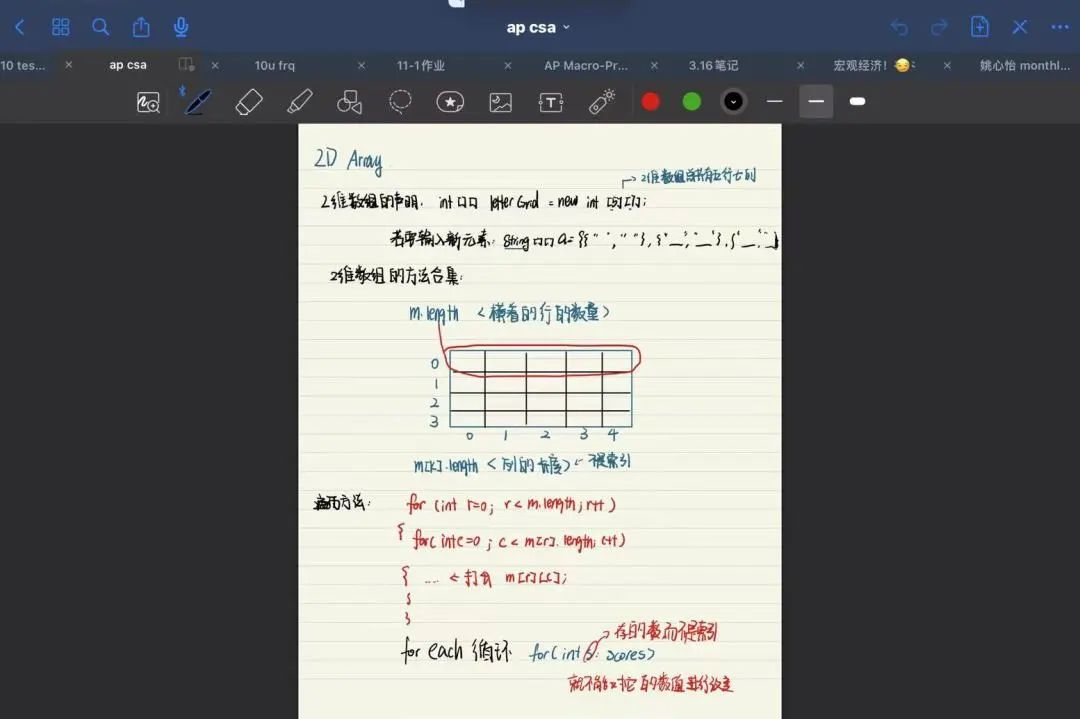 ap csa
10 tes...
ap csa
10u frq
11-1作业
AP Macro-Pr...
3.16笔记
宏观经济！😏
姚心怡 monthl...
2D Array
2维数组总共有五行七列
2维数组的声明. int[][] letterGrid = new int [5][7];
若要输入新元素: String[][] a={{" "," "},{"__","__"},{"__","__
2维数组的方法合集:
m.length <横着的行的数量>
0
1
2
3
0 1 2 3 4
m[k].length <列的长度> ← 不是索引
遍历方法: for (int r=0; r<m.length;r++)
{ for(int c=0; c<m[r].length; c++)
{ .... ← 打出 m[r][c];
}
}
存的数而不是索引
for each 循环 for(int s: scores)
就不能对它的数值进行改变